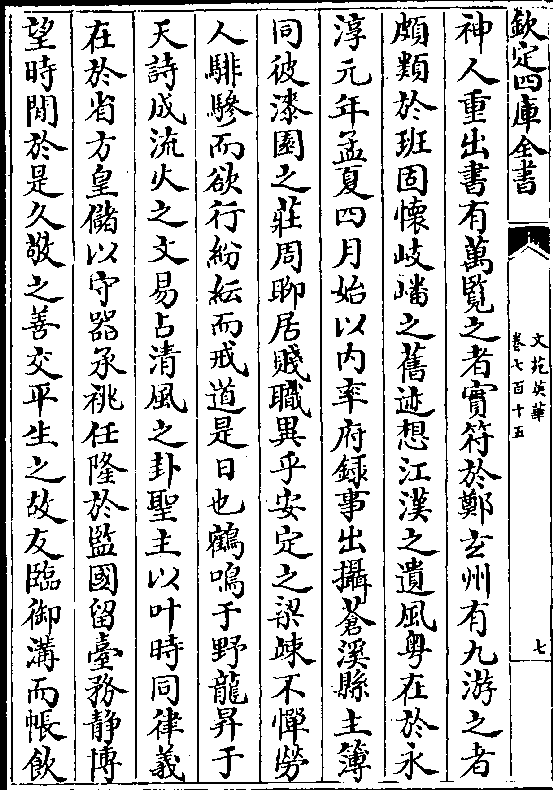 欽定四庫全書
文苑英華
卷七百十五
七
神人重出書有萬覽之者實符於鄭玄州有九游之者
頗類於班固懷岐嶓之舊迹想江漢之遺風粤在於永
淳元年孟夏四月始以内率府録事出攝蒼溪縣主簿
同彼漆園之莊周聊居賤職異乎安定之梁竦不憚勞
人騑驂而欲行紛紜而戒道是日也鶴鳴于野龍昇于
天詩成流火之文易占清風之卦聖主以叶時同律義
在於省方皇儲以守器承祧任隆於監國留臺務静博
望時閒於是久敬之善交平生之故友臨御溝而帳飲